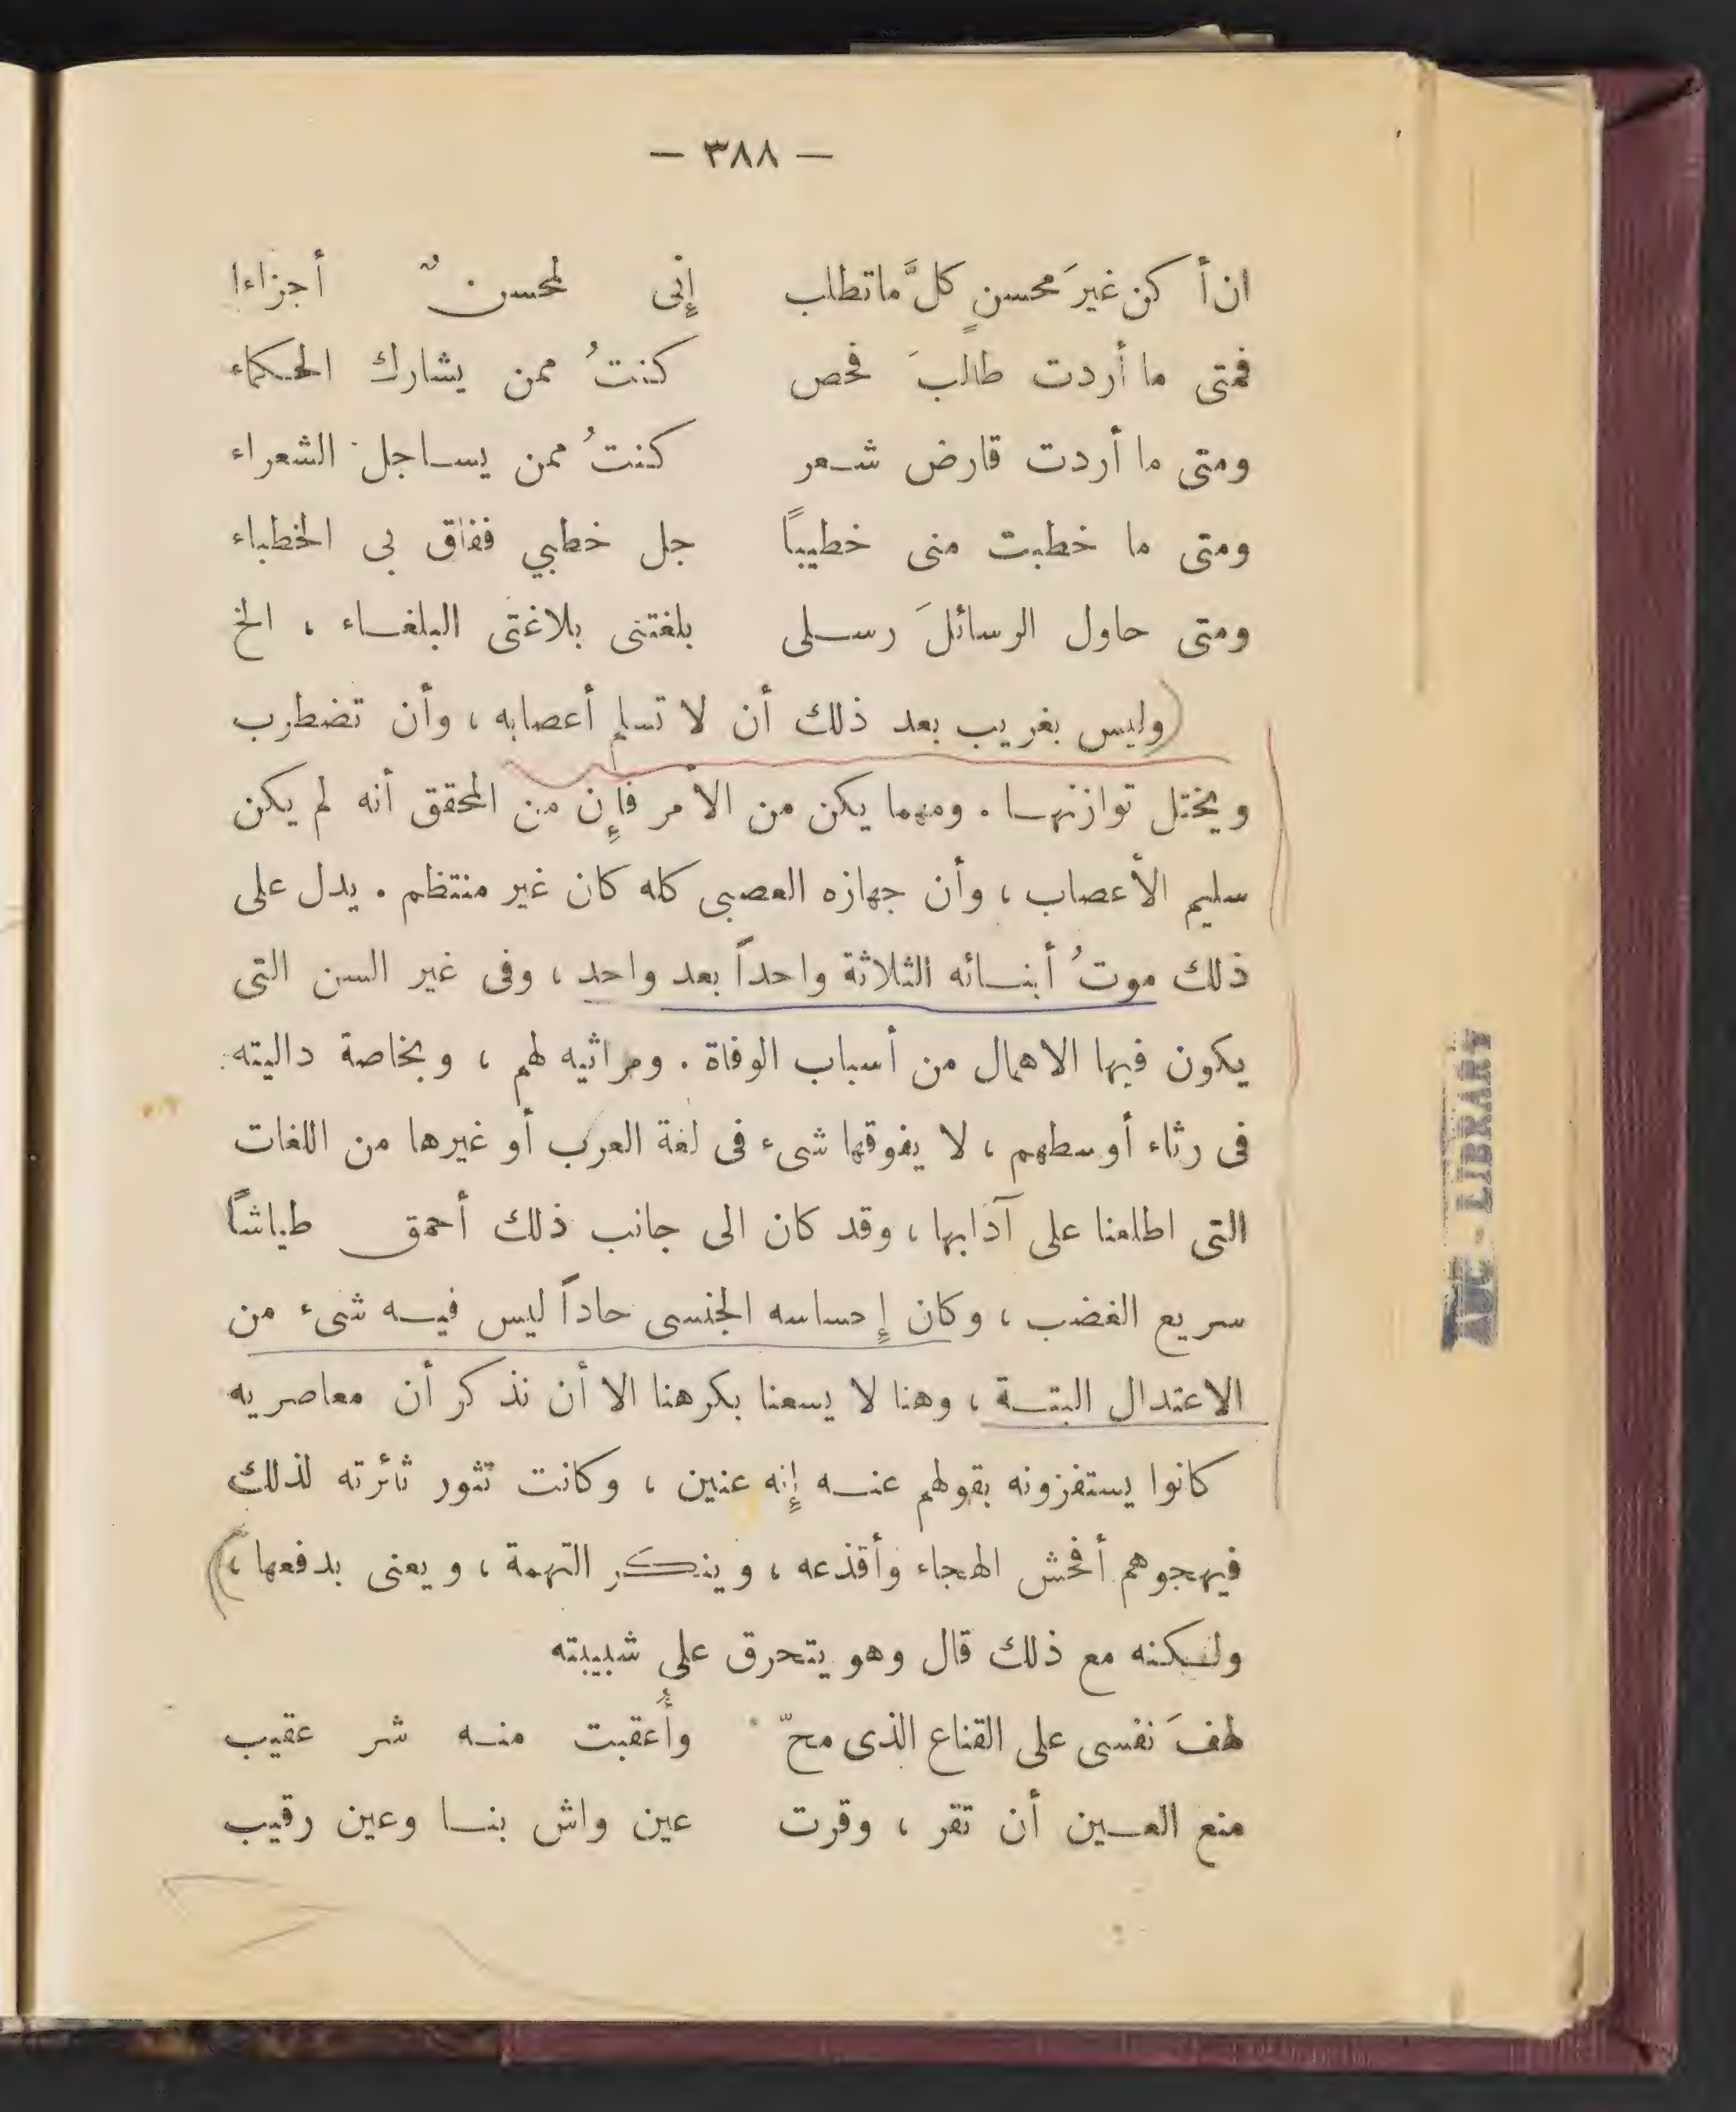 — ٣٨٨ —
ان أكن غيرَ محسنٍ كلَّ ماتطلب إنى لمحسنٌ أجزاءا
فمتى ما أردت طالبَ فحص كنتُ ممن يشارك الحكماء
ومتى ما أردت قارض شعر كنتُ ممن يساجل الشعراء
ومتى ما خطبت منى خطيباً جل خطبي ففاق بى الخطباء
ومتى حاول الرسائلَ رسلى بلغتنى بلاغتى البلغاء ، الخ
وليس بغريب بعد ذلك أن لا تسلم أعصابه ، وأن تضطرب
ويختل توازنها . ومهما يكن من الأمر فإن من المحقق أنه لم يكن
سليم الأعصاب ، وأن جهازه العصبى كله كان غير منتظم . يدل على
ذلك موتُ أبنائه الثلاثة واحداً بعد واحد ، وفى غير السن التى
يكون فيها الاهمال من أسباب الوفاة . ومراثيه لهم ، وبخاصة داليته
فى رثاء أوسطهم ، لا يفوقها شىء فى لغة العرب أو غيرها من اللغات
التى اطلعنا على آدابها ، وقد كان الى جانب ذلك أحمق طياشاً
سريع الغضب ، وكان إحساسه الجنسى حاداً ليس فيه شىء من
الاعتدال البتة ، وهنا لا يسعنا بكرهنا الا أن نذكر أن معاصريه
كانوا يستفزونه بقولهم عنه إنه عنين ، وكانت تثور ثائرته لذلك
فيهجوهم أفحش الهجاء وأقذعه ، وينكر التهمة ، ويعنى بدفعها ،
ولكنه مع ذلك قال وهو يتحرق على شبيبته
لهفَ نفسى على القناع الذى محّ وأُعقبت منه شر عقيب
منع العين أن تقر ، وقرت عين واش بنا وعين رقيب
AUC - LIBRARY